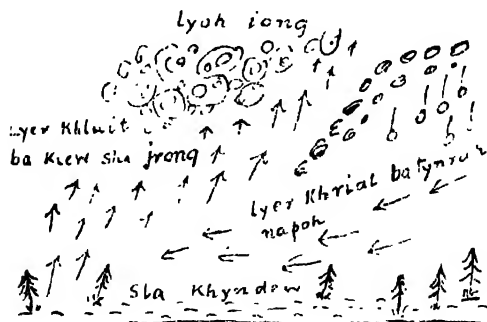 lyoh iong
Lyer Khluit
ba Kiew sha jrong
lyer Khriat batynruh
napoh
Sla Khyndew